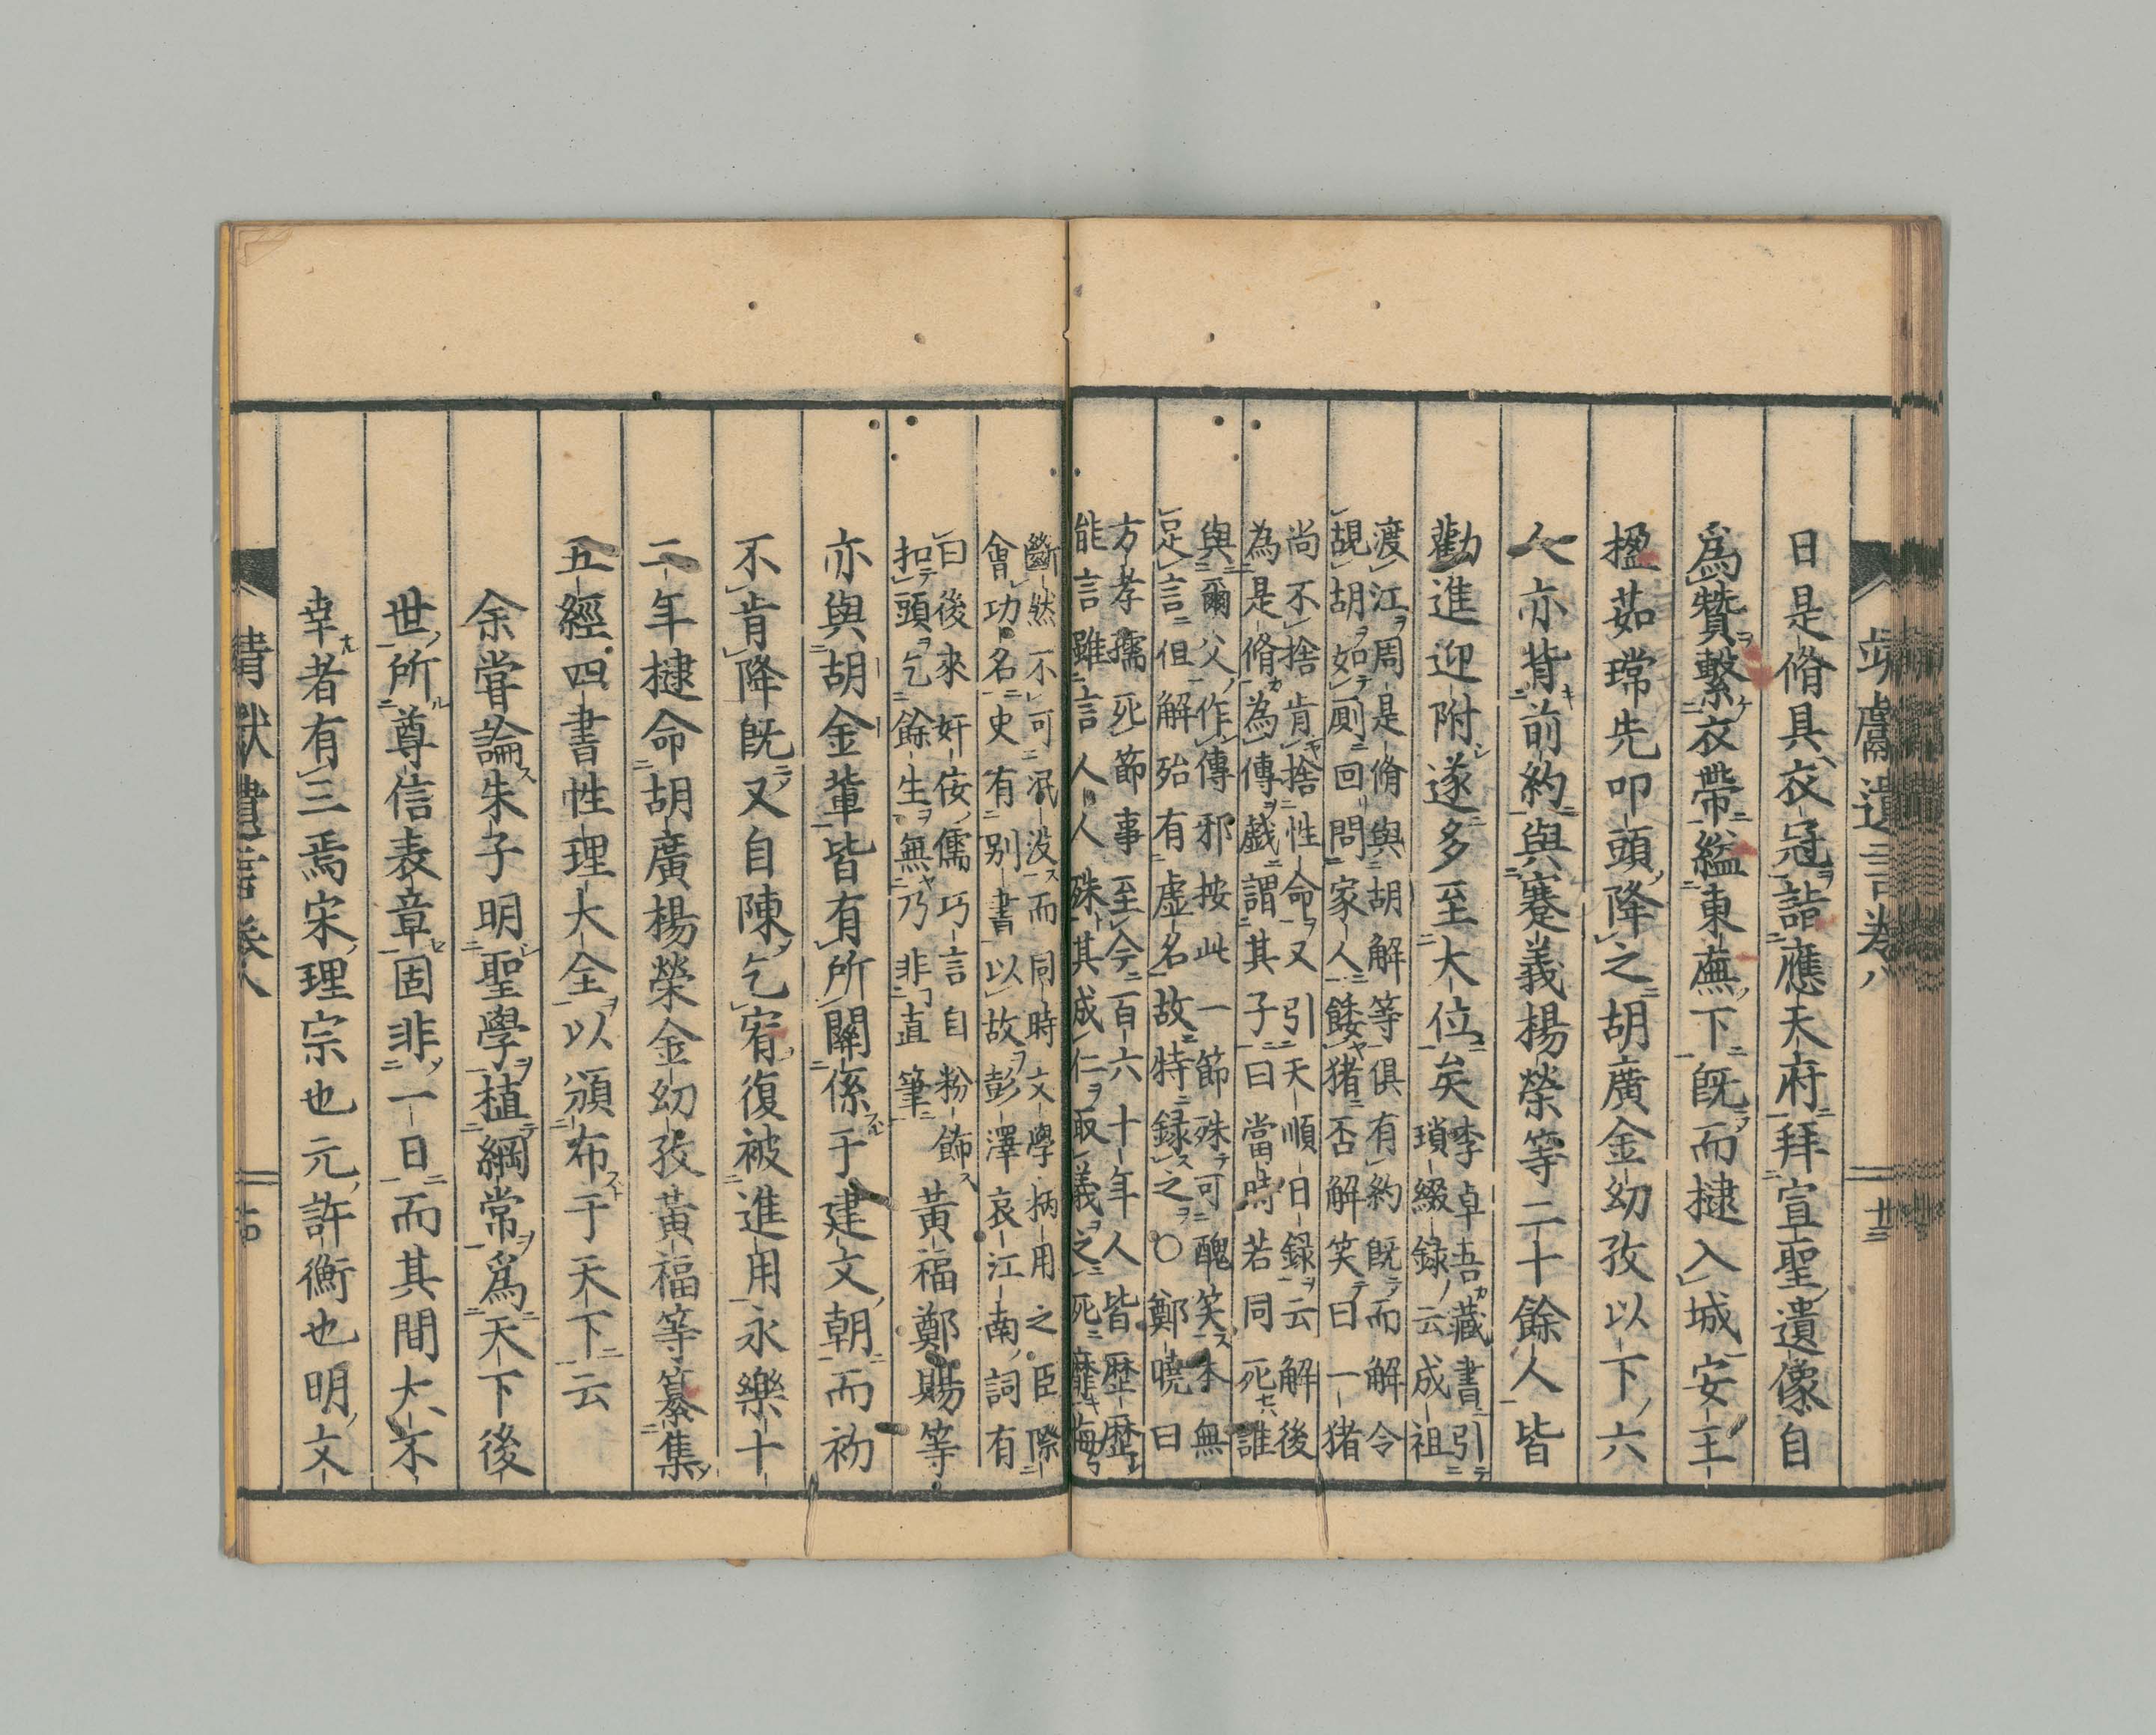 靖獻遺言卷八
廿三
日是脩具衣冠詣應天府拜宣聖遺像自
爲贊繫衣帶縊東廡下旣而棣入城安王
楹茹瑺先叩頭降之胡廣金幼孜以下六
人亦背前約與蹇義楊榮等二十餘人皆
勸進迎附遂多至大位矣
李卓吾藏書引
瑣綴録云成祖
渡江周是脩與胡解等俱有約旣而解令
覘胡如厠回問家人餧猪否解笑曰一猪
尚不捨肯捨性命又引天順日録云解後
為是脩為傳戲謂其子曰當時若同死誰
與爾父作傳邪按此一節殊可醜笑本無
足言但解殆有虛名故特録之〇鄭曉曰
方孝孺死節事至今百六十年人皆歷歷
能言雖言人人殊其成仁取義之死靡悔
斷然不可泯没而同時文學柄用之臣際
會功名史有别書以故彭澤哀江南詞有
曰後來奸侫儒巧言自粉飾
扣頭乞餘生無乃非直筆
黃福鄭賜等
亦與胡金輩皆有所關係于建文朝而初
不肯降旣又自陳乞宥復被進用永樂十
二年棣命胡廣楊榮金幼孜黃福等纂集
五經四書性理大全以頒布于天下云
余嘗論朱子明聖學植綱常爲天下後
世所尊信表章固非一日而其間大不
幸者有三焉宋理宗也元許衡也明文
靖獻遺言卷八